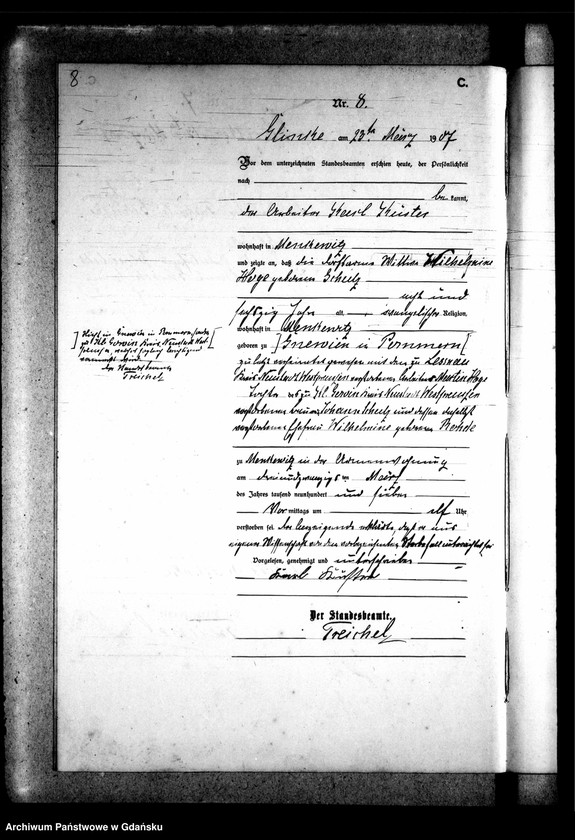 8
C.
Nr. 8.
Glinke am 23ten März 1907
Vor dem unterzeichneten Standesbeamten erschien heute, der Persönlichkeit
nach
be kannt,
der Arbeiter Karl
wohnhaft in Menkewitz
und zeigte an, daß die Wittwe Wilhelmine
Hoge geborene Schulz
acht und
sechzig Jahre alt, evangelischer Religion,
wohnhaft in Menkewitz
geboren zu ] Gnewin in Pommern [
zuletzt verheirathet gewesen mit dem zu
Kreis Neustadt Westpreußen verstorbenen Arbeiter Martin Hoge
Tochter des zu Kl. Gewin Kreis Neustadt Westpreußen
verstorbenen Johann Schulz und dessen daselbst
verstorbenen Ehefrau Wilhelmine geborenen
] Nicht in Gnewin in Pommern sondern
zu Kl. Gewin Kreis Neustadt West-
preußen,
Der Standesbeamte
Treichel
zu Menkewitz in der Armenwohnung
am dreiundzwanzigsten März
des Jahres tausend neunhundert und sieben
Vor mittags um elf Uhr
verstorben sei. Der Anzeigende erklärte, daß er aus
eigener Wissenschaft von dem vorbezeichneten Sterbefall unterrichtet sei
Vorgelesen, genehmigt und unterschrieben
Karl
Der Standesbeamte.
Treichel
Archiwum Państwowe w Gdańsku